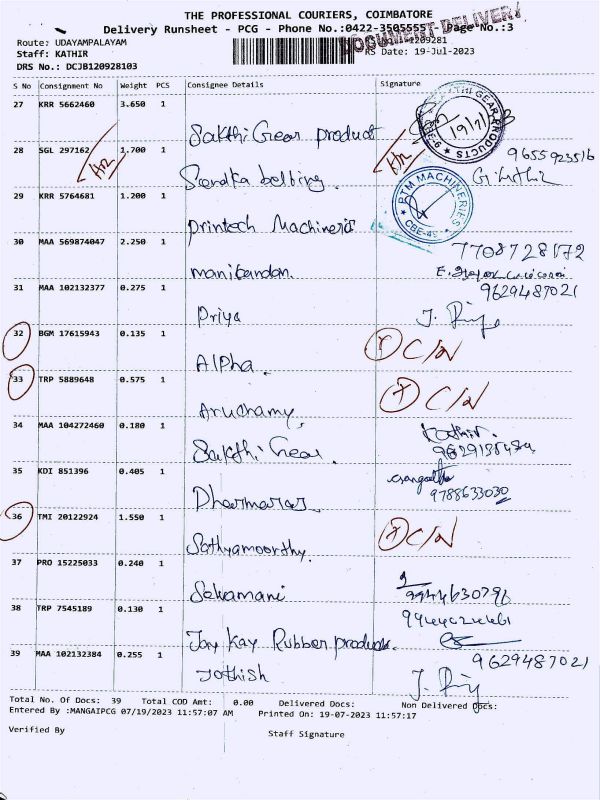 THE PROFESSIONAL COURIERS, COIMBATORE
Delivery Runsheet - PCG - Phone No.:0422-3505555 Page No.:3
DOCUMENT DELIVERY
Route: UDAYAMPALAYAM
Staff: KATHIR
RS Date: 19-Jul-2023
DRS No.: DCJB120928103
S No Consignment No Weight PCS Consignee Details Signature
27 KRR 5662460 3.650 1 Sakthi Gear product
28 SGL 297162 1.700 1 belting.
9655923516
29 KRR 5764681 1.200 1 Printech Machineris
PTM MACHINERIES
CBE-49
30 MAA 569874047 2.250 1 manikandan.
7708728172
31 MAA 102132377 0.275 1 Priya
9629487021
32 BGM 17615943 0.135 1 Alpha. C/N
33 TRP 5889648 0.575 1 Aruchamy. C/N
34 MAA 104272460 0.180 1 Sakthi Gear.
35 KDI 851396 0.405 1 Dharmaraj
9788633030
36 TMI 20122924 1.550 1 Sathyamoorthy. C/N
37 PRO 15225033 0.240 1 Selvamani
9944630796
38 TRP 7545189 0.130 1 Jay Kay Rubber products.
39 MAA 102132384 0.255 1 Jothish
9629487021
Total No. Of Docs: 39 Total COD Amt: 0.00 Delivered Docs: Non Delivered Docs:
Entered By :MANGAIPCG 07/19/2023 11:57:07 AM Printed On: 19-07-2023 11:57:17
Verified By Staff Signature